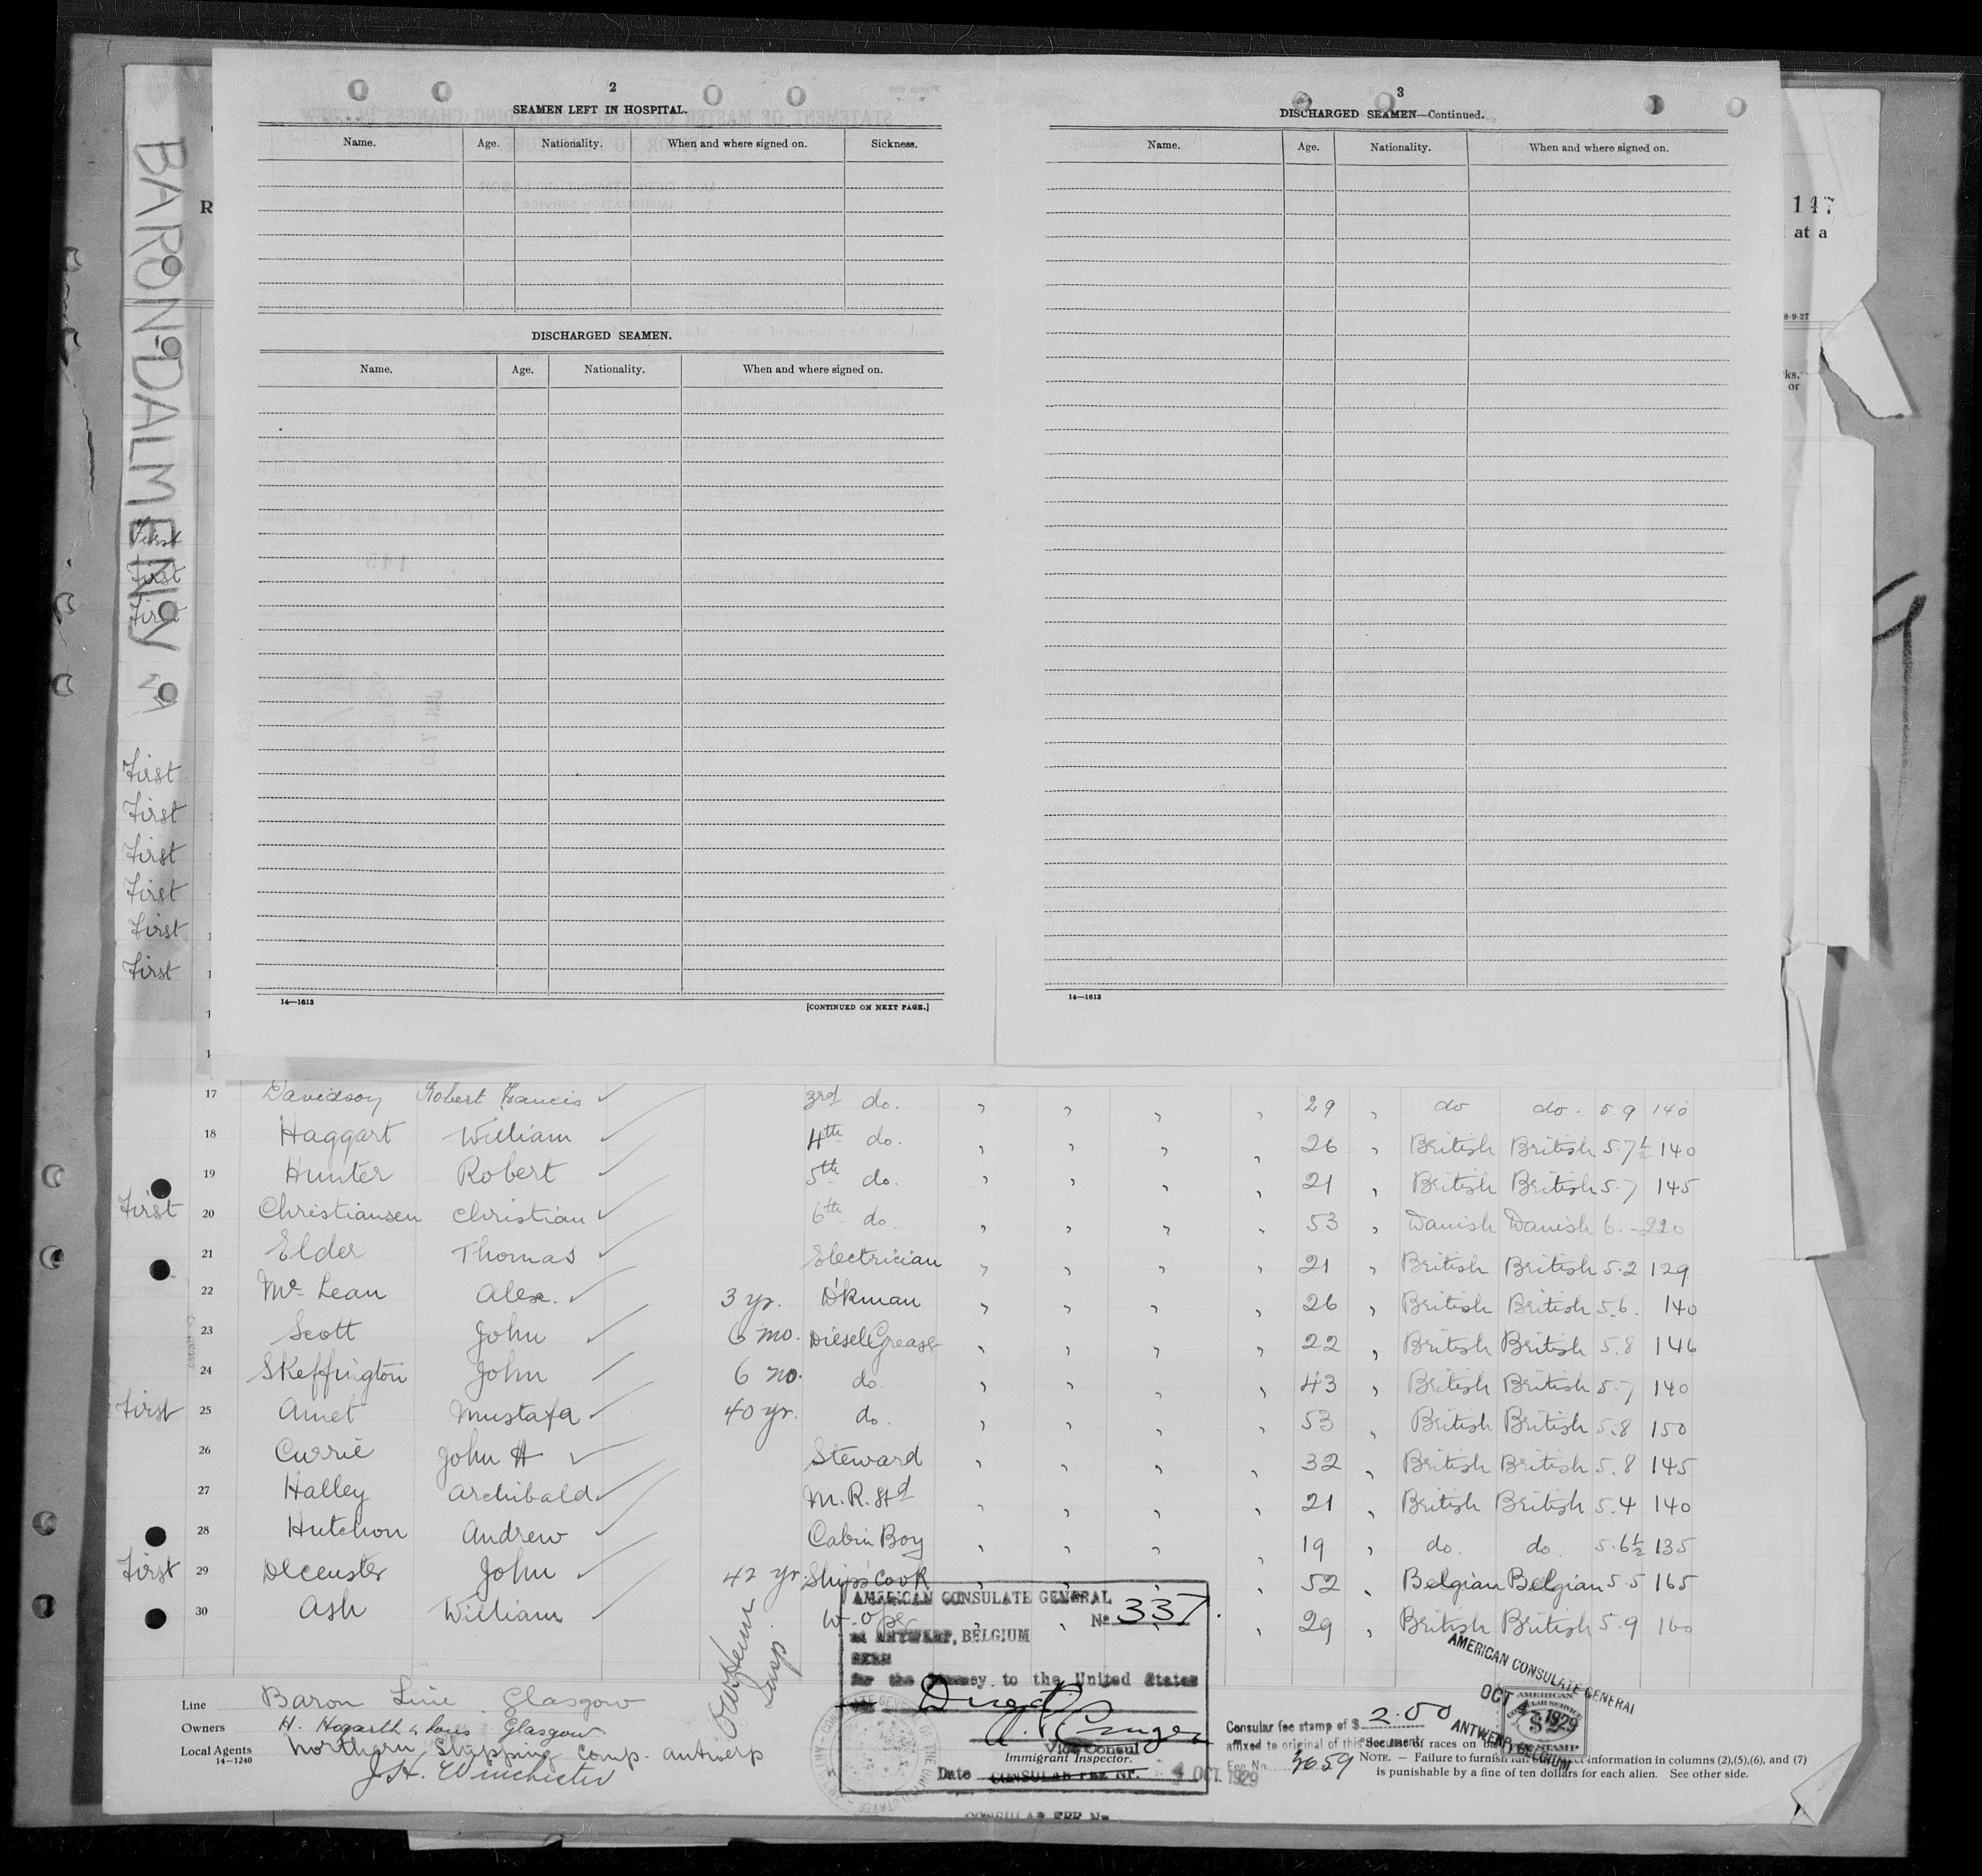 BARON DALMENY
2
SEAMEN LEFT IN HOSPITAL.
Name. Age. Nationality. When and where signed on. Sickness.
DISCHARGED SEAMEN.
Name. Age. Nationality. When and where signed on.
14—1613 [CONTINUED ON NEXT PAGE.]
3
DISCHARGED SEAMEN—Continued.
Name. Age. Nationality. When and where signed on.
14—1613
R
147
at a
8-9-27
ks.
or
First
First
First
First
First
First
First
First
First
17 Davidson Robert Francis 3rd do. 29 do do. 5.9 140
18 Haggart William 4th do. 26 British British 5.7½ 140
19 Hunter Robert 5th do. 21 British British 5.7 145
First 20 Christiansen Christian 6th do 53 Danish Danish 6.- 220
21 Elder Thomas Electrician 21 British British 5.2 129
22 Mc Lean Alex. 3 yr. D'kman 26 British British 5.6. 140
23 Scott John 6 mo. Diesel Greaser 22 British British 5.8 146
24 Skeffington John 6 mo. do. 43 British British 5.7 140
First 25 Amet Mustafa 40 yr. do. 53 British British 5.8 150
26 Currie John H Steward 32 British British 5.8 145
27 Halley Archibald M.R. Std 21 British British 5.4 140
28 Hutchon Andrew Cabin Boy 19 do. do. 5.6½ 135
First 29 Deceuster John 42 yr. Ship's Cook 52 Belgian Belgian 5.5 165
30 Ash William W. Opr 29 British British 5.9 160
AMERICAN CONSULATE GENERAL
No 337.
at ANTWERP, BELGIUM
SEEN
for the journey to the United States
Vice Consul
Immigrant Inspector.
Date CONSULAR FEE Nr. 4 OCT. 1929
CONSULAR FEE No
Line Baron Line Glasgow
Owners H. Hogarth & Sons Glasgow
Local Agents Northern Shipping Comp. Antwerp
14—1240
J.H. Winchester
Consular fee stamp of $ 2.00
affixed to original of this document
Fee No. 4659
AMERICAN CONSULATE GENERAL
OCT 4 1929
ANTWERP BELGIUM
AMERICAN
CONSULAR SERVICE
$2
FEE STAMP
See list of races on back
NOTE. — Failure to furnish full information in columns (2),(5),(6), and (7)
is punishable by a fine of ten dollars for each alien. See other side.